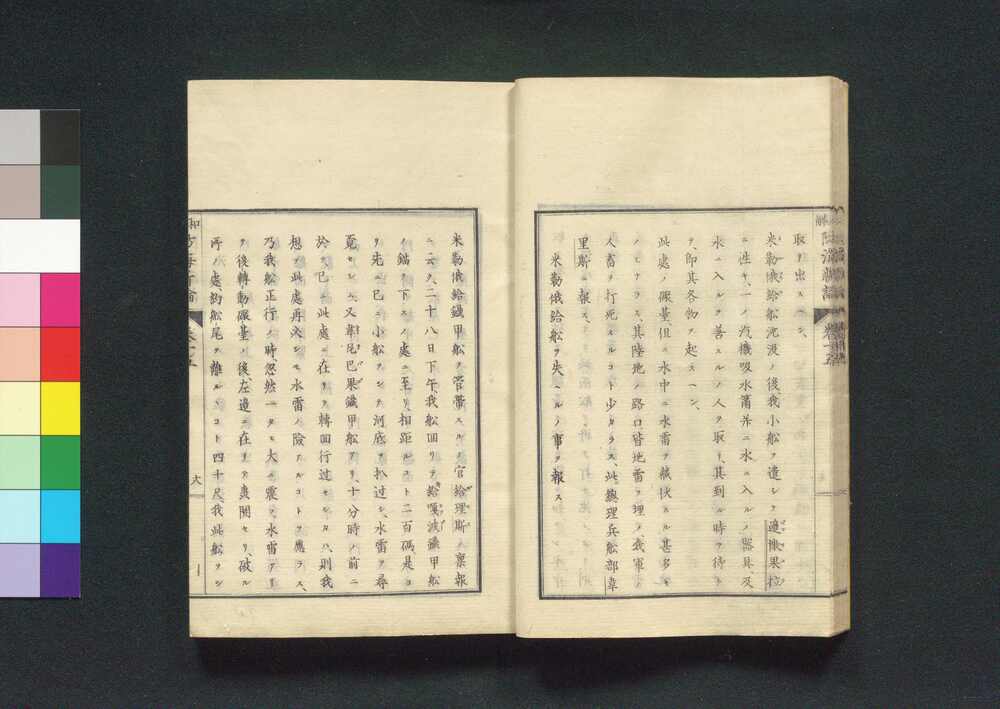 取リ出スベシ、
米勒俄給船沈没ノ後我小船ヲ遣シテ
ニ往キ、一ノ汽機吸水筩并ニ水ニ入ルノ器具、及
水ニ入ルヲ善スルノ人ヲ取リ、其到ル時ヲ待チ
テ、即其各物ヲ起スベシ、
此處ノ礟臺但ニ水中ニ水雷ヲ藏伏スル甚多キ
ノミナラス、其陸地ノ路口、皆地雷ヲ埋ノ我軍ノ
人畜ヲ打死スルコト少カラス、此總理兵船部韋
里斯ニ報ス
米勒俄給船ヲ失ヘルノ事ヲ報ス
米勒俄給鐵甲船ヲ管帶スルノ官給理斯ノ稟報
ニ云フ、二十八日下午、我船回リテ給嘎波鐵甲船
ノ錨ヲ下スノ處ニ至リ、相距ルコト二百碼、是ヨ
リ先ニ已ニ小船ヲシテ河底ヲ扒過シ、水雷ヲ尋
覓セシム、又韋尼巴果鐵甲船アリ、十分時ノ前ニ
於テ已ニ此處ニ在リテ轉回行過セシタハ、則我
想フ此處再次シモ水雷ノ險アルコトヲ應ラス、
乃我船正行ノ時、忽然一タビ大ニ震フ、水雷アリ
テ後轉動礟臺ノ後左邊ニ在リテ轟開セリ、破ル
所ノ處約船尾ヲ離ルヽコト四十尺、我此船ヲシ
大